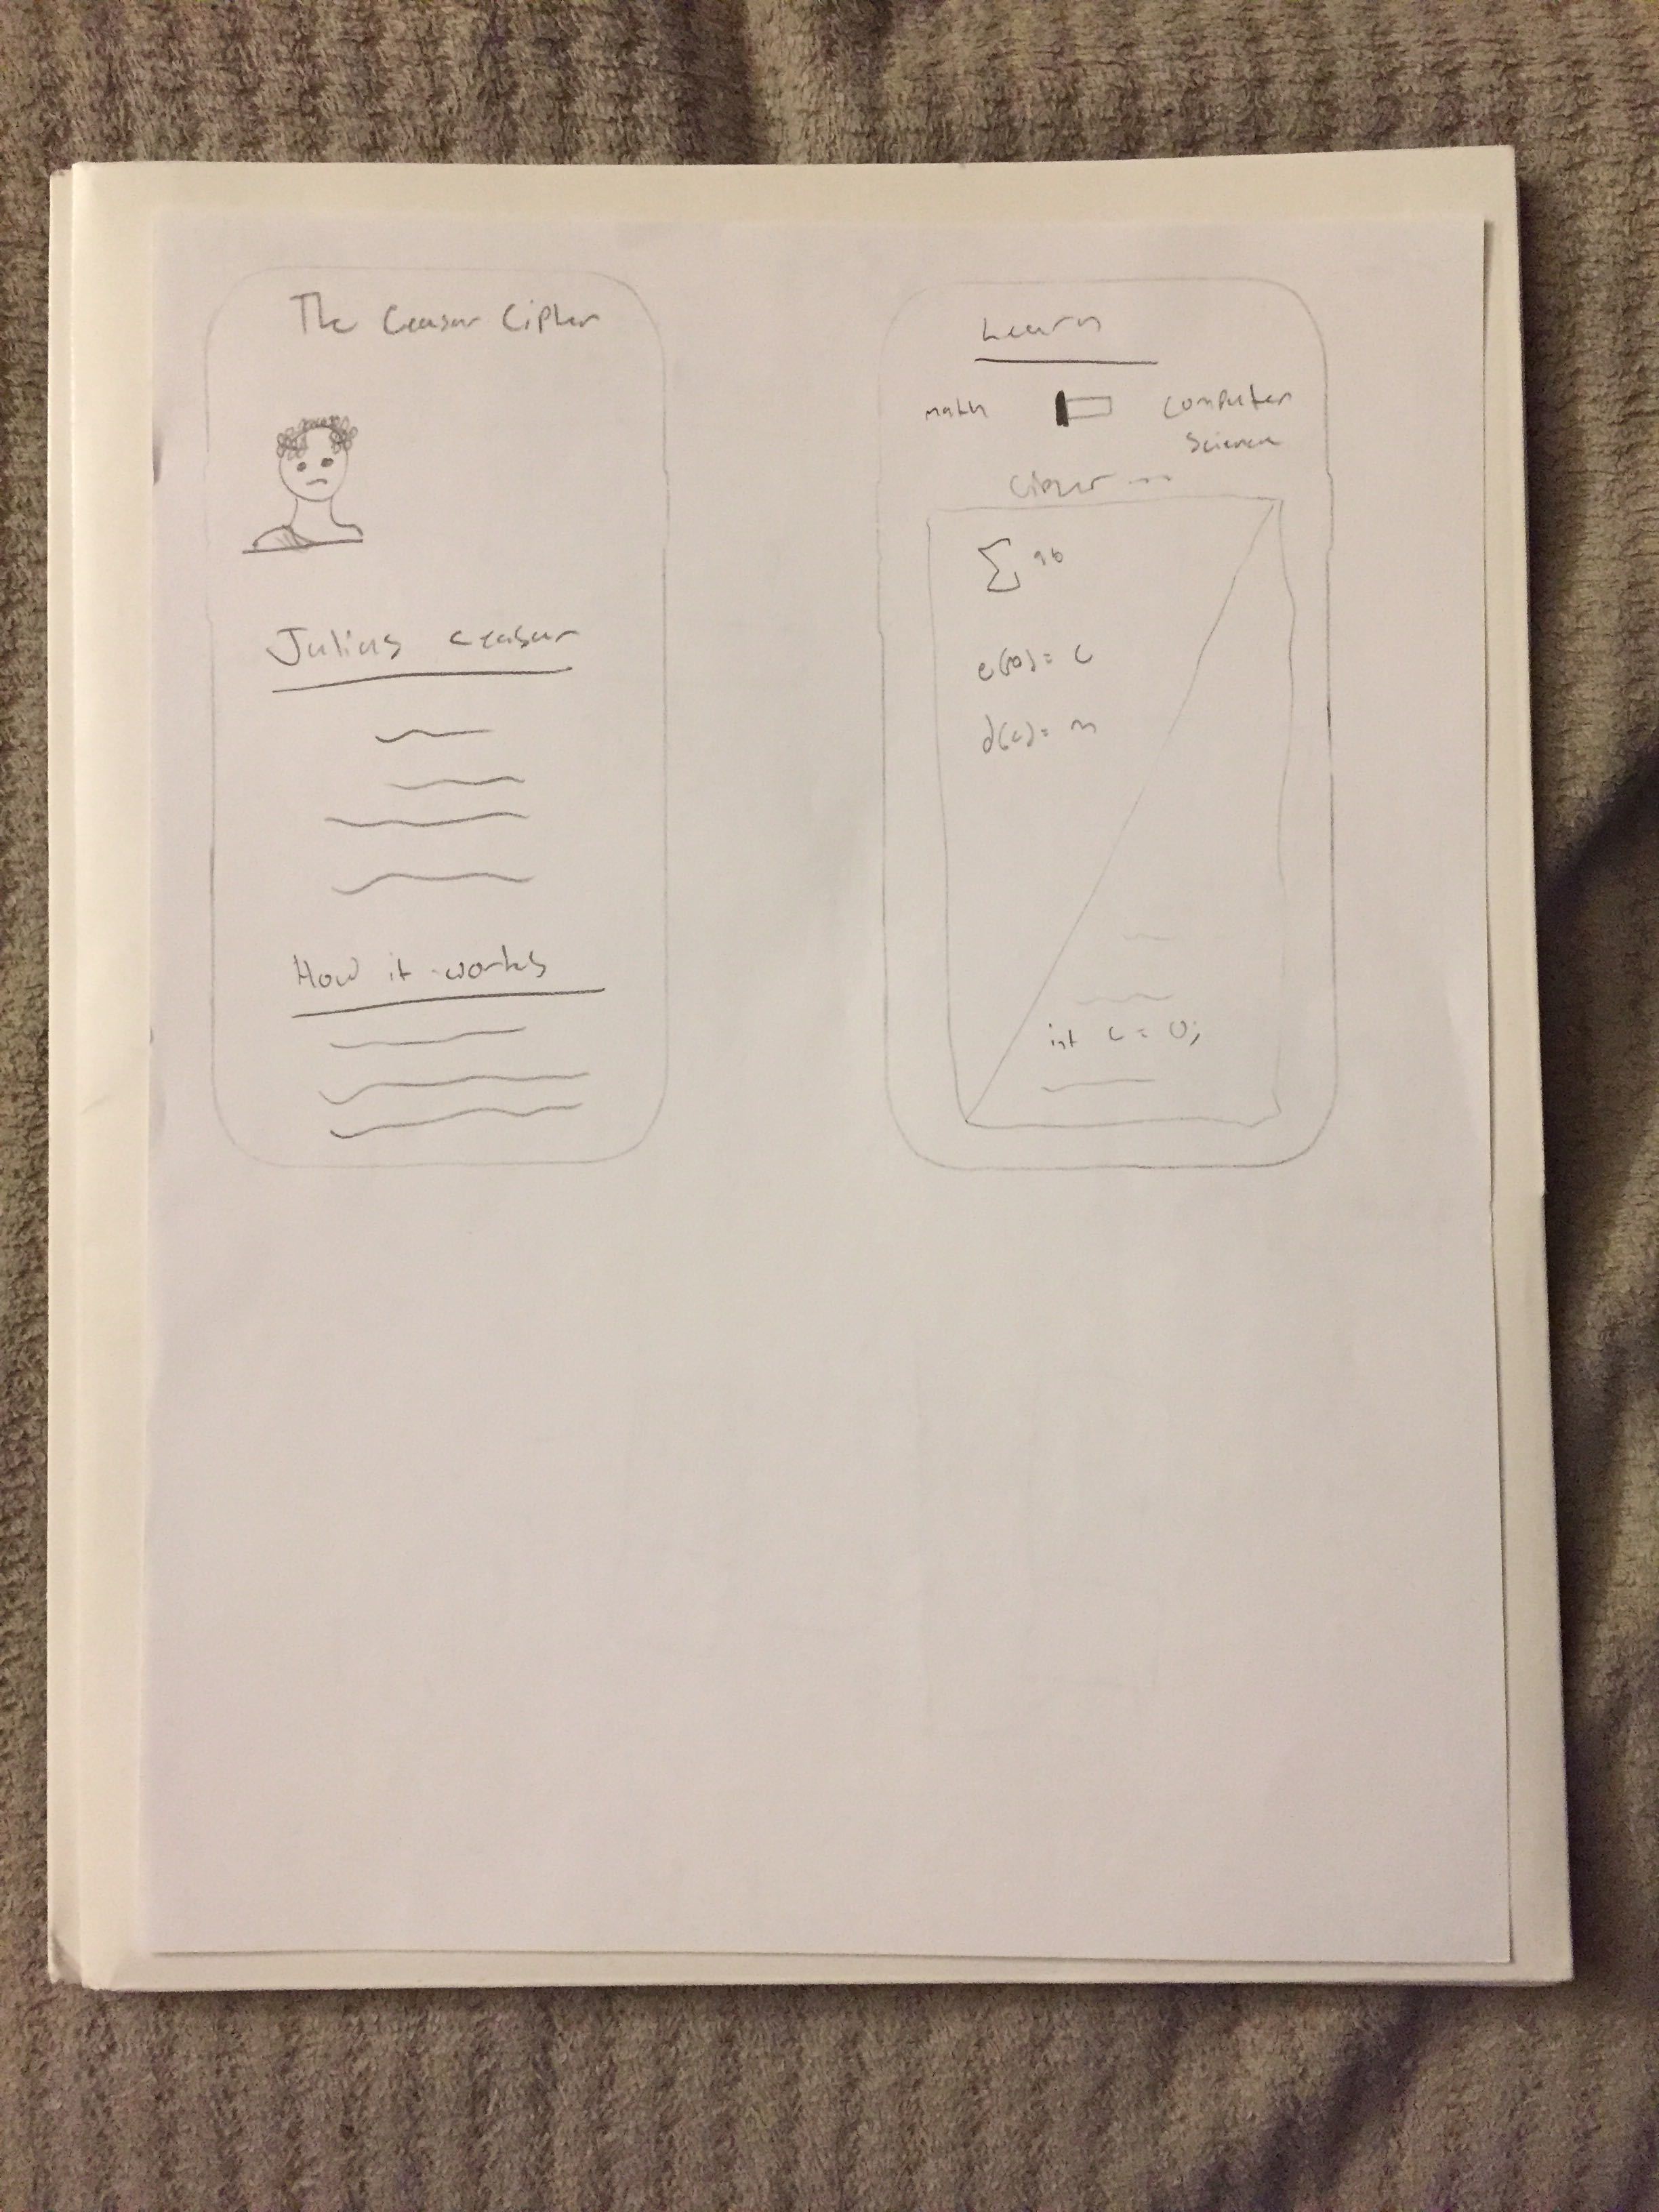 The Ceasar Cipher
Julius ceasar
How it works
Learn
math
Computer
Science
Cipher ---
∑
e(m) = c
d(c) = m
int c = 0;